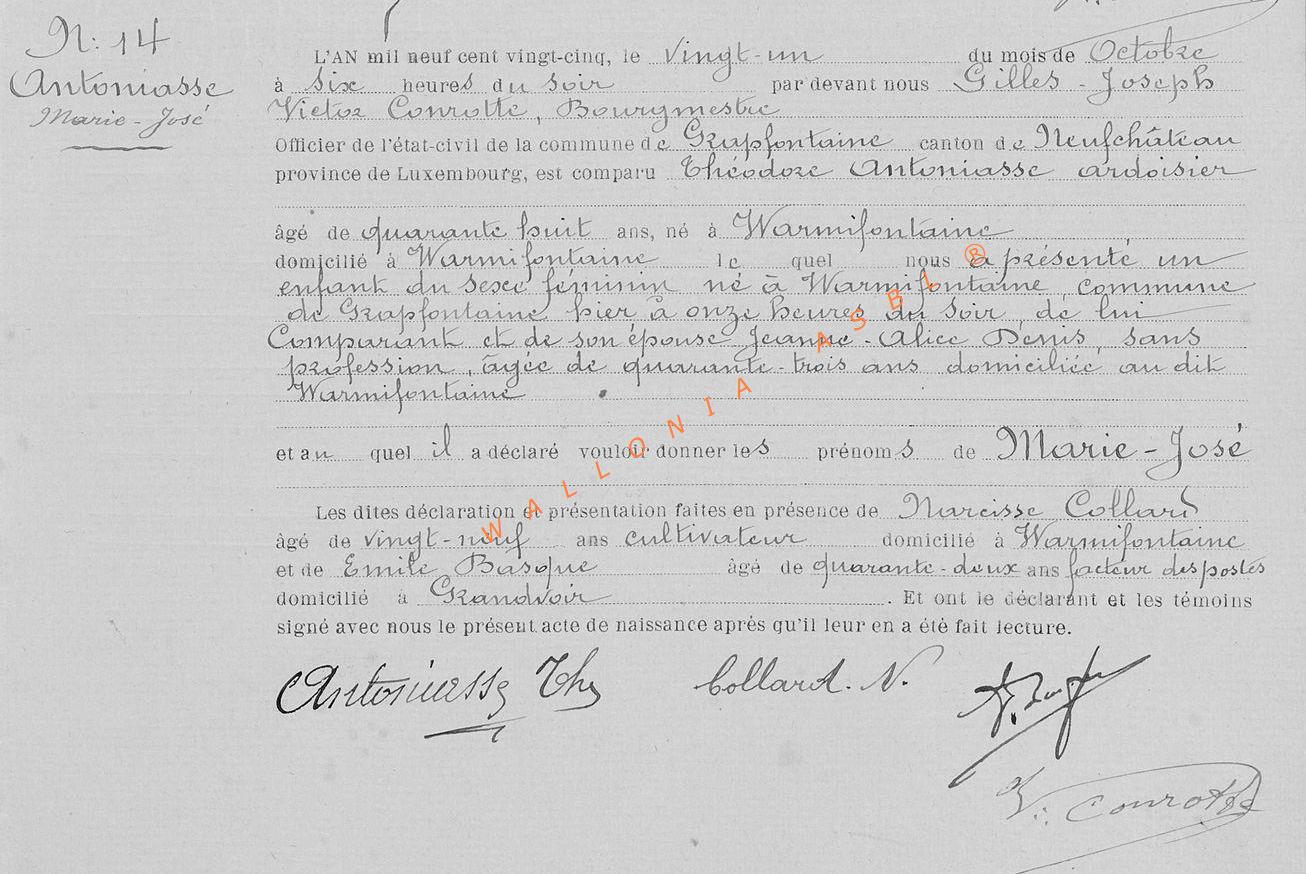 N: 14
Antoniasse
Marie-José
L'AN mil neuf cent vingt-cinq, le vingt-un du mois de Octobre
à six heures du soir par devant nous Gilles-Joseph
Victor Conrotte, Bourgmestre
Officier de l'état-civil de la commune de Grapfontaine canton de Neufchâteau
province de Luxembourg, est comparu Théodore Antoniasse ardoisier
âgé de quarante huit ans, né à Warmifontaine
domicilié à Warmifontaine le quel nous a présenté un
enfant du sexe féminin né à Warmifontaine, commune
de Grapfontaine hier à onze heures du soir, de lui
Comparant et de son épouse Jeanne-Alice Denis, sans
profession, âgée de quarante-trois ans domiciliée au dit
Warmifontaine
et au quel il a déclaré vouloir donner les prénoms de Marie-José
Les dites déclaration et présentation faites en présence de Narcisse Collard
âgé de vingt-neuf ans cultivateur domicilié à Warmifontaine
et de Emile Basque âgé de quarante-deux ans facteur des postes
domicilié à Grandvoir. Et ont le déclarant et les témoins
signé avec nous le présent acte de naissance après qu'il leur en a été fait lecture.
Antoniasse Th
Collard. N.
V. Conrotte
WALLONIA ASBL ®